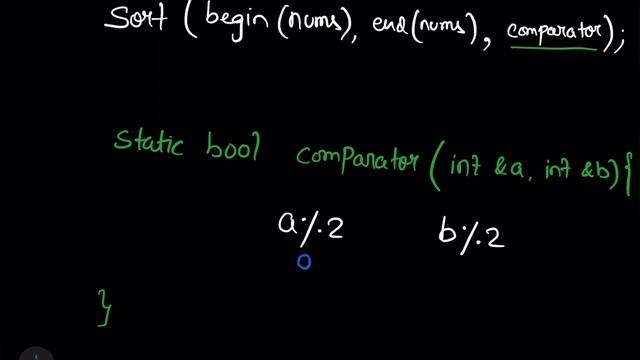 Sort ( begin (nums), end (nums), comparator);
static bool comparator ( int &a, int &b) {
a % 2 b % 2
0
}